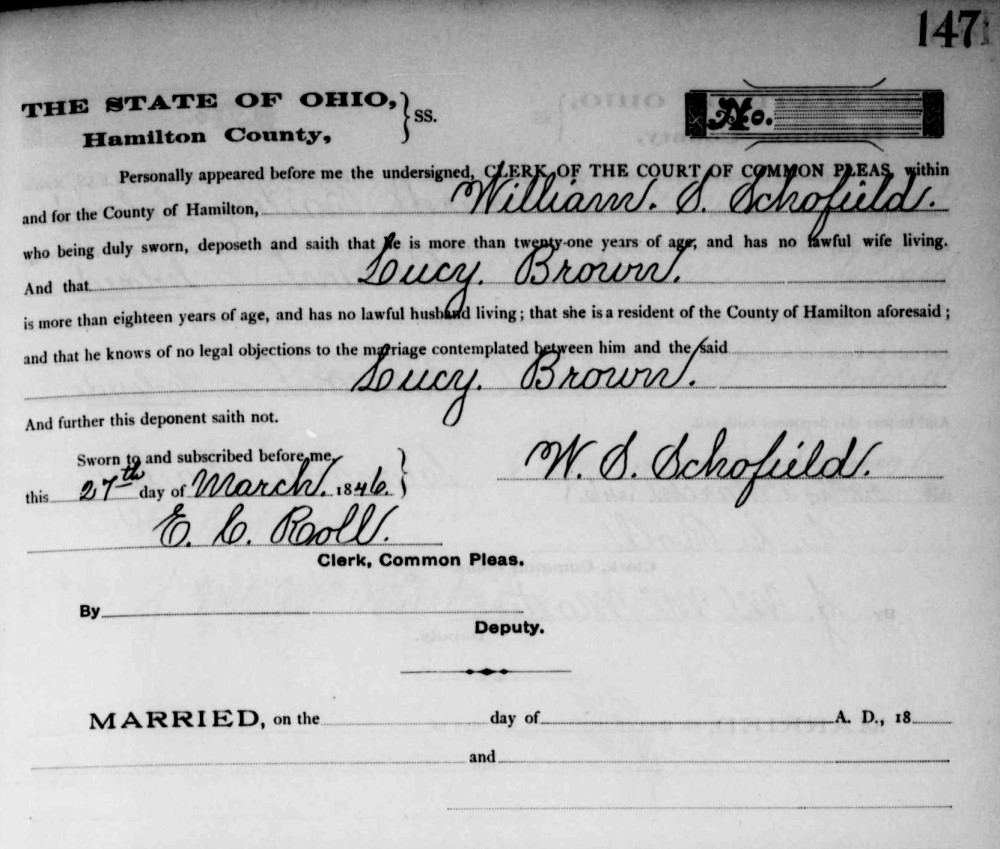 147
THE STATE OF OHIO, } ss.
Hamilton County,
No.
Personally appeared before me the undersigned, CLERK OF THE COURT OF COMMON PLEAS, within
and for the County of Hamilton, William. S. Schofield.
who being duly sworn, deposeth and saith that he is more than twenty-one years of age, and has no lawful wife living.
And that Lucy. Brown.
is more than eighteen years of age, and has no lawful husband living; that she is a resident of the County of Hamilton aforesaid;
and that he knows of no legal objections to the marriage contemplated between him and the said
Lucy. Brown.
And further this deponent saith not.
Sworn to and subscribed before me,
this 27th day of March. 1846. }
W. S. Schofield.
E. C. Roll.
Clerk, Common Pleas.
By
Deputy.
MARRIED, on the day of A. D., 18
and